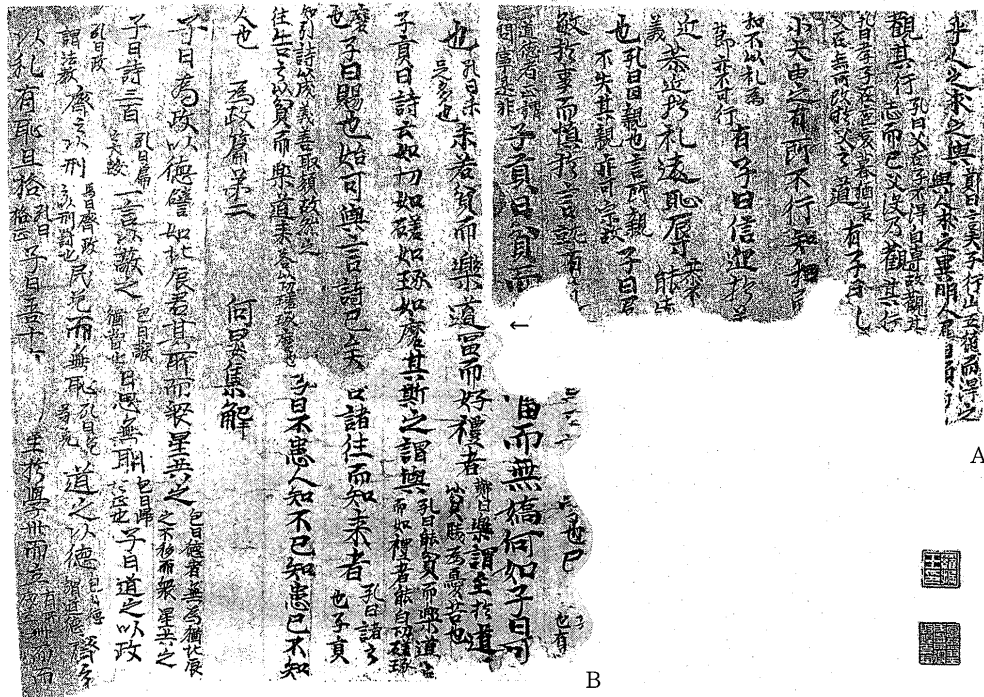 乎人之求之與 鄭曰言夫子行此五德而得之與人求之異明人君自願
觀其行 孔曰父在子不得自專故觀其志而已父没乃觀其行
孔曰孝子在喪哀慕猶若父在無所改於父之道 有子曰礼
小大由之有所不行知和
知不以礼為節亦不可行 有子曰信近於義
近 恭近於礼遠恥辱
也 孔曰因親也言所親不失其親亦可宗敬 子曰君
敏於事而慎於言就有
子貢曰貧而 諂而無驕何如子曰可
也 孔曰未足多也 未若貧而樂道冨而好禮者 鄭曰樂謂至於道 以貧賤為憂苦也
子貢曰詩云如切如磋如琢如磨其斯之謂與 孔曰能貧而樂道冨而好禮者能自切磋琢
磨也 子曰賜也始可與言詩已矣 告諸往而知来者 孔曰諸之也子貢
知引詩以成義善取類故然之往告之以貧而樂道来荅以切磋琢磨也 子曰不患人知不己知患己不知
人也 為政篇第二 何晏集解
子曰為政以德譬如北辰君其所而衆星共之 包曰德者無為猶北辰之不移而衆星共之
子曰詩三百 孔曰篇之大數 一言以蔽之 包曰蔽猶當也 曰思無邪 包曰歸於正也 子曰道之以政
孔曰政謂法教 齊之以刑 馬曰齊政之以刑罰也 民免而無恥 孔曰免苟免 道之以德 包曰德謂道德 齊之
以礼有恥且格 孔曰格正 子曰吾十有 学卅而立 有所
←
A
B